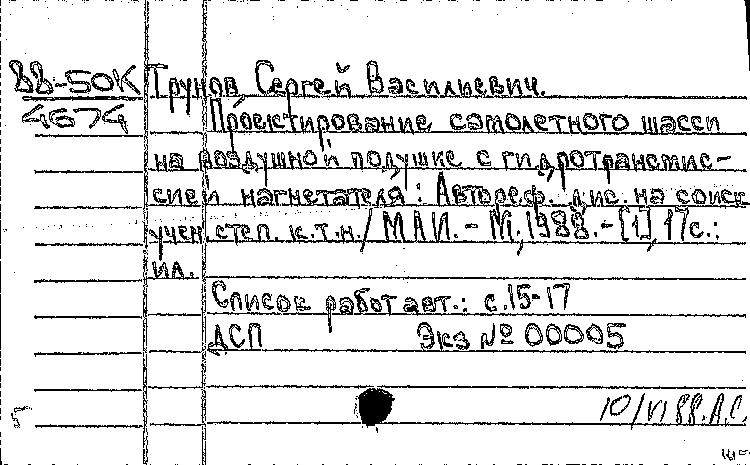 88-50К Трунов, Сергей Василиевич.
4674 Проектирование самолетного шасси
на воздушной подушке с гидротрансмис-
сией нагнетателя : Автореф. дис. на соиск
учен. степ. к.т.н. / МАИ. - М., 1988. - [1], 17 с.:
ил.
Список работ авт.: с.15-17
ДСП Экз № 00005
10/VI 88. А.С.